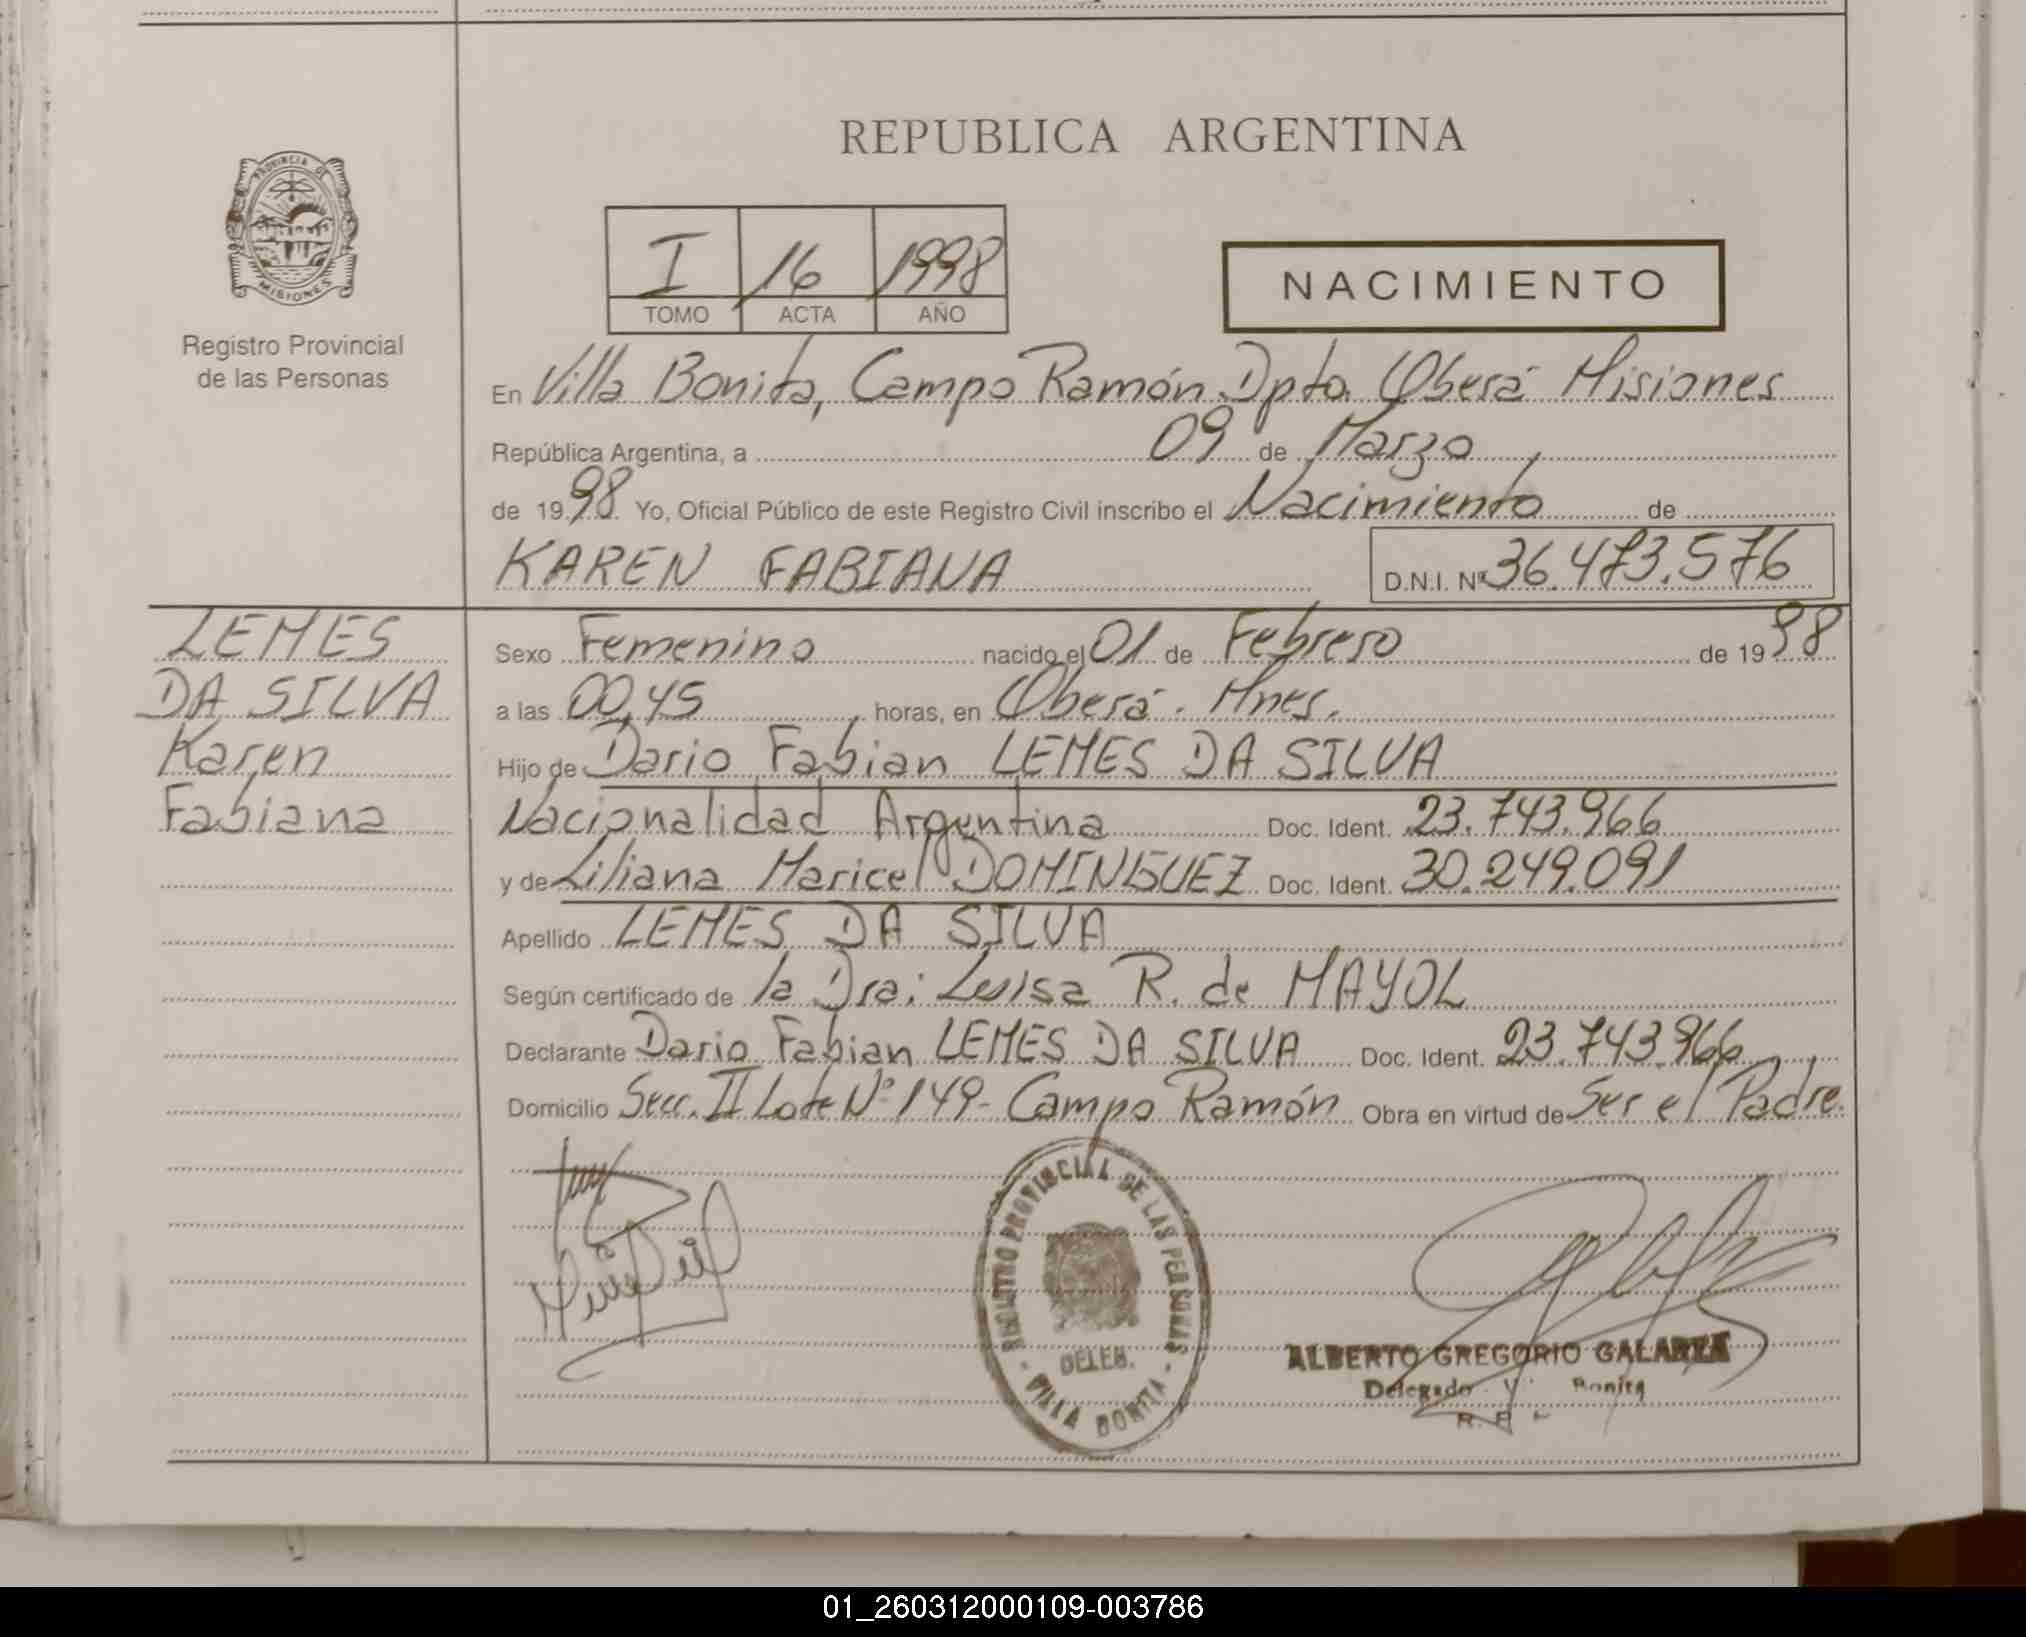 PROVINCIA DE
MISIONES
Registro Provincial
de las Personas
REPUBLICA ARGENTINA
I 16 1998
TOMO ACTA AÑO
NACIMIENTO
En Villa Bonita, Campo Ramón Dpto. Oberá Misiones
República Argentina, a 09 de Marzo
de 1998 Yo, Oficial Público de este Registro Civil inscribo el Nacimiento de
KAREN FABIANA D.N.I. Nº 36.473.576
LEMES
DA SILVA
Karen
Fabiana
Sexo Femenino nacido el 01 de Febrero de 1998
a las 00,45 horas, en Oberá. Mnes.
Hijo de Dario Fabian LEMES DA SILVA
Nacionalidad Argentina Doc. Ident. 23.743.966
y de Liliana Maricel DOMINGUEZ Doc. Ident. 30.249.091
Apellido LEMES DA SILVA
Según certificado de la Dra: Luisa R. de MAYOL
Declarante Dario Fabian LEMES DA SILVA Doc. Ident. 23.743.966
Domicilio Secc. II Lote Nº 149- Campo Ramón Obra en virtud de Ser el Padre.
REGISTRO PROVINCIAL DE LAS PERSONAS
DELEG.
- VILLA BONITA -
ALBERTO GREGORIO GALARZA
Delegado V. Bonita
R. P.
01_260312000109-003786